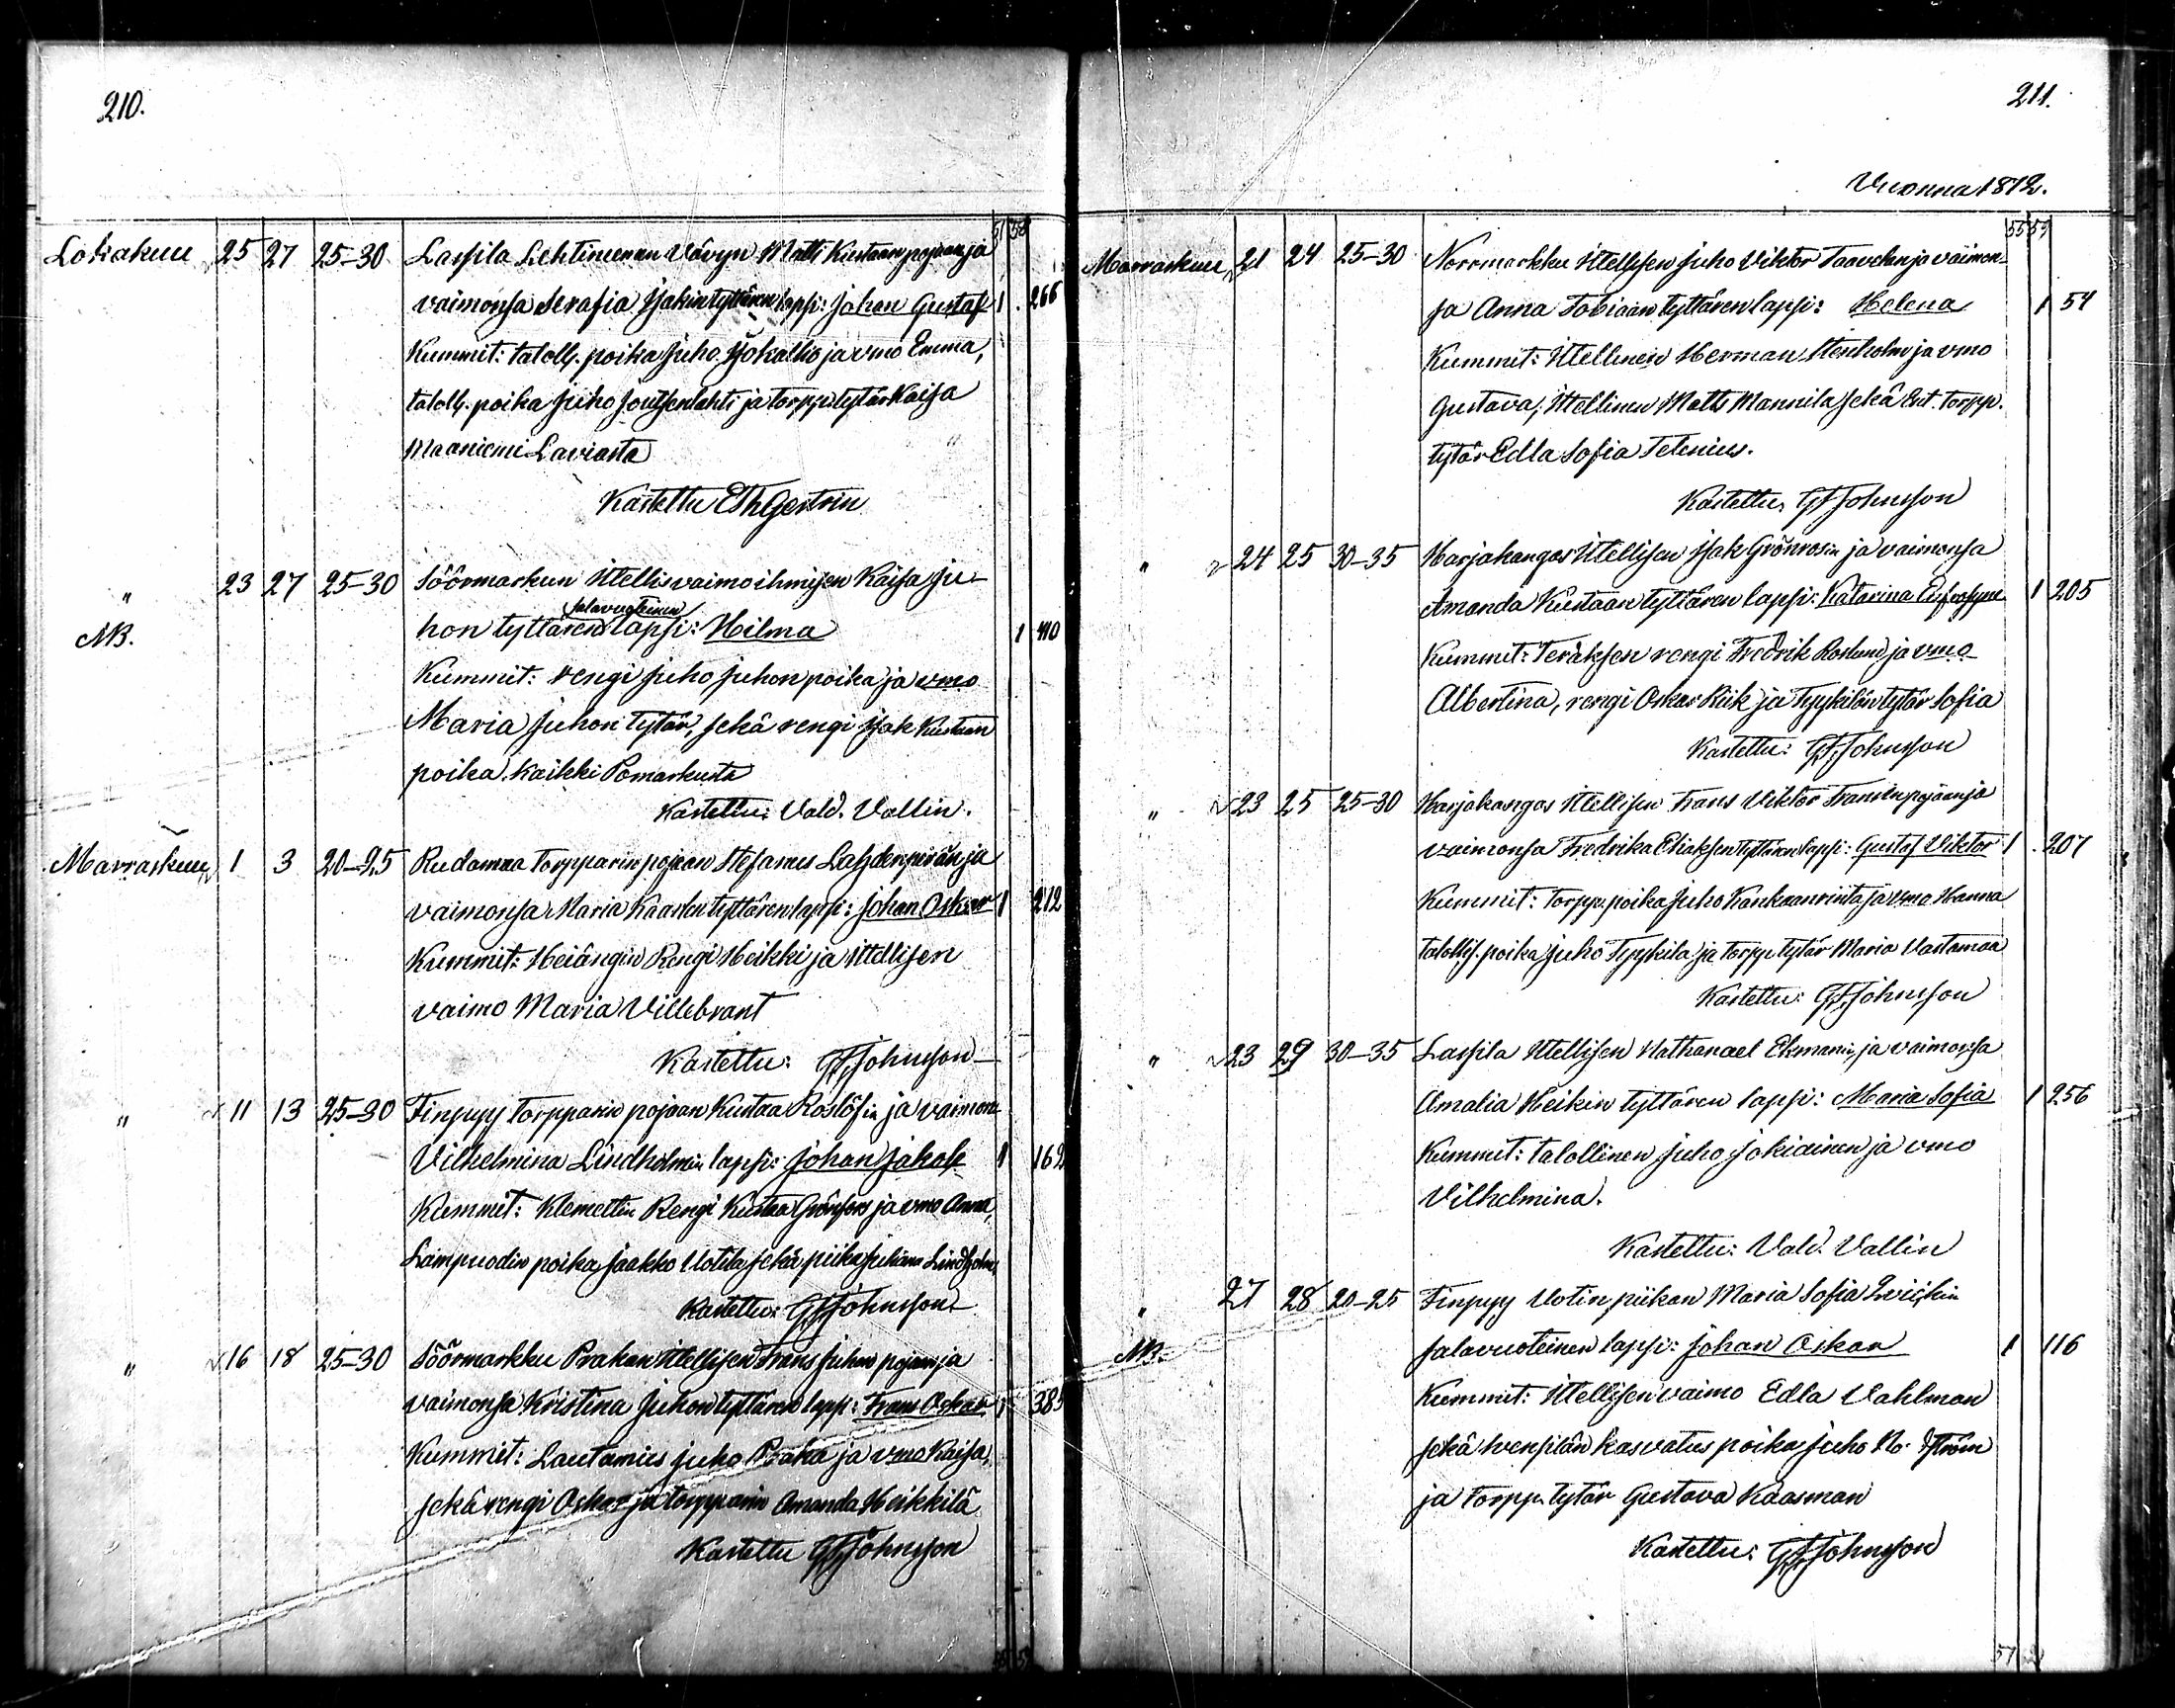 210.
Lokakuu 25 27 25-30 Lassila Lehtimenan Vävyn Matti Kustaan pojan ja
vaimonsa Serafia Isakin tyttären lapsi: Johan Gustaf 1 266
Kummit: taloll. poika Juho Isokallio ja vmo Emma,
taloll. poika Juho Joutsenlahti ja torpp. tytär Kaisa
Maaniemi Laviasta
Kastettu Eth Gestrin
" 23 27 25-30 Söörmarkun Itellis vaimoihmisen Kaisa Ju-
salavuoteinen
NB. hon tyttären lapsi: Hilma 1 410
Kummit: rengi Juho Juhon poika ja vmo
Maria Juhon tytär, sekä rengi Isak Kustaan
poika. Kaikki Pomarkusta
Kastettu: Vald. Vallin.
Marraskuu 1 3 20-25 Rudamaa Torpparin pojaan Stefanus Lahdenperän ja
vaimonsa Maria Kaarlen tyttären lapsi: Johan Oskar 1 212
Kummit: Heiängin Rengi Heikki ja Itellisen
vaimo Maria Villebrant
Kastettu: GF Johnsson
" 11 13 25-30 Finpyy torpparin pojaan Kustaa Roslöfin ja vaimons
Vilhelmina Lindholmin lapsi: Johan Jakob 1 162
Kummit: Klemettin Rengi Kustaa Grönfors ja vmo Anna,
Lampuodin poika Jaakko Uotila sekä piika Juliana Lindholm,
Kastettu: GF Johnsson
" 16 18 25-30 Söörmarkku Prakan Itellisen Frans Juhon pojan ja
vaimonsa Kristina Juhon tyttären lapsi: Frans Oskar 1 385
Kummit: Lautamies Juho Praka ja vmo Kaisa,
sekä rengi Oskar ja torpparin Amanda Heikkilä
Kastettu GF Johnsson
211.
Vuonna 1872.
Marraskuu 21 24 25-30 Norrmarkku Itellisen Juho Viktor Taavelin ja vaimon-
sa Anna Tobiaan tyttären lapsi: Helena 1 54
Kummit: Itellinen Herman Stenholm ja vmo
Gustava, Itellinen Matts Mannila sekä Ent. Torpp.
tytär Edla Sofia Telenius.
Kastettu, GF Johnsson
" 24 25 30-35 Harjakangas Itellisen Isak Grönroos'in ja vaimonsa
Amanda Kustaan tyttären lapsi: Katarina Eufrosyne 1 205
Kummit: Teräksen rengi Fredrik Roslund ja vmo
Albertina, rengi Oskar Riik ja Tyykilän tytär Sofia
Kastettu: GF Johnsson
" 23 25 25-30 Harjakangas Itellisen Frans Viktor Fransin pojaan ja
vaimonsa Fredrika Eliaksen tyttären lapsi: Gustaf Viktor 1 207
Kummit: Torpp. poika Juho Kankaanrinta ja vmo Hanna
talollis. poika Juho Tyykilä ja torpp. tytär Maria Vastamaa
Kastettu: GF Johnsson
" 23 29 30-35 Lassila Itellisen Nathanael Ekmanin, ja vaimonsa
Amalia Heikin tyttären lapsi: Maria Sofia 1 256
Kummit: talollinen Juho Jokiainen ja vmo
Vilhelmina.
Kastettu: Vald. Vallin
" 27 28 20-25 Finpyy Uotin piikan Maria Sofia
NB. salavuoteinen lapsi: Johan Oskar 1 116
Kummit: Itellisen vaimo Edla Vahlman
sekä kasvatus poika Juho
ja Torpp. tytär Gustava Kaasman
Kastettu: GF Johnsson